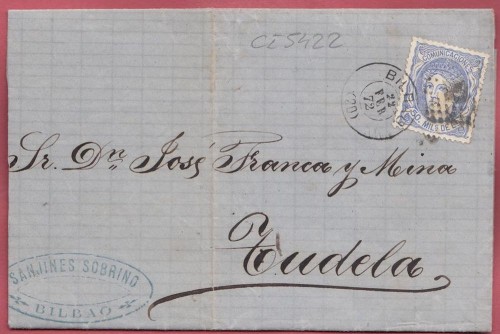 CI5422
COMUNICACIONES
50. MILS DE E
BILBAO
22
FEB
72
Sr. Dn. José Franca y Mina
Tudela
SANJINES SOBRINO
BILBAO